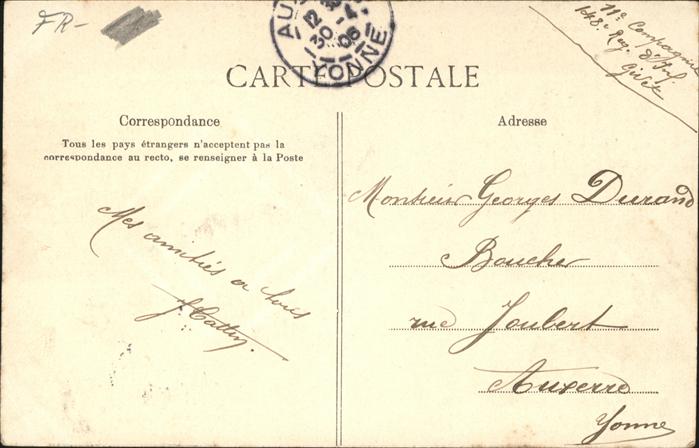 FR-
AU
YONNE
11e Compagnie
148e Reg. d'Inf.
Givet
CARTE POSTALE
Correspondance
Tous les pays étrangers n'acceptent pas la
correspondance au recto, se renseigner à la Poste
Mes amitiés a tous
Adresse
Monsieur Georges Durand
Boucher
rue Joubert
Auxerre
Yonne